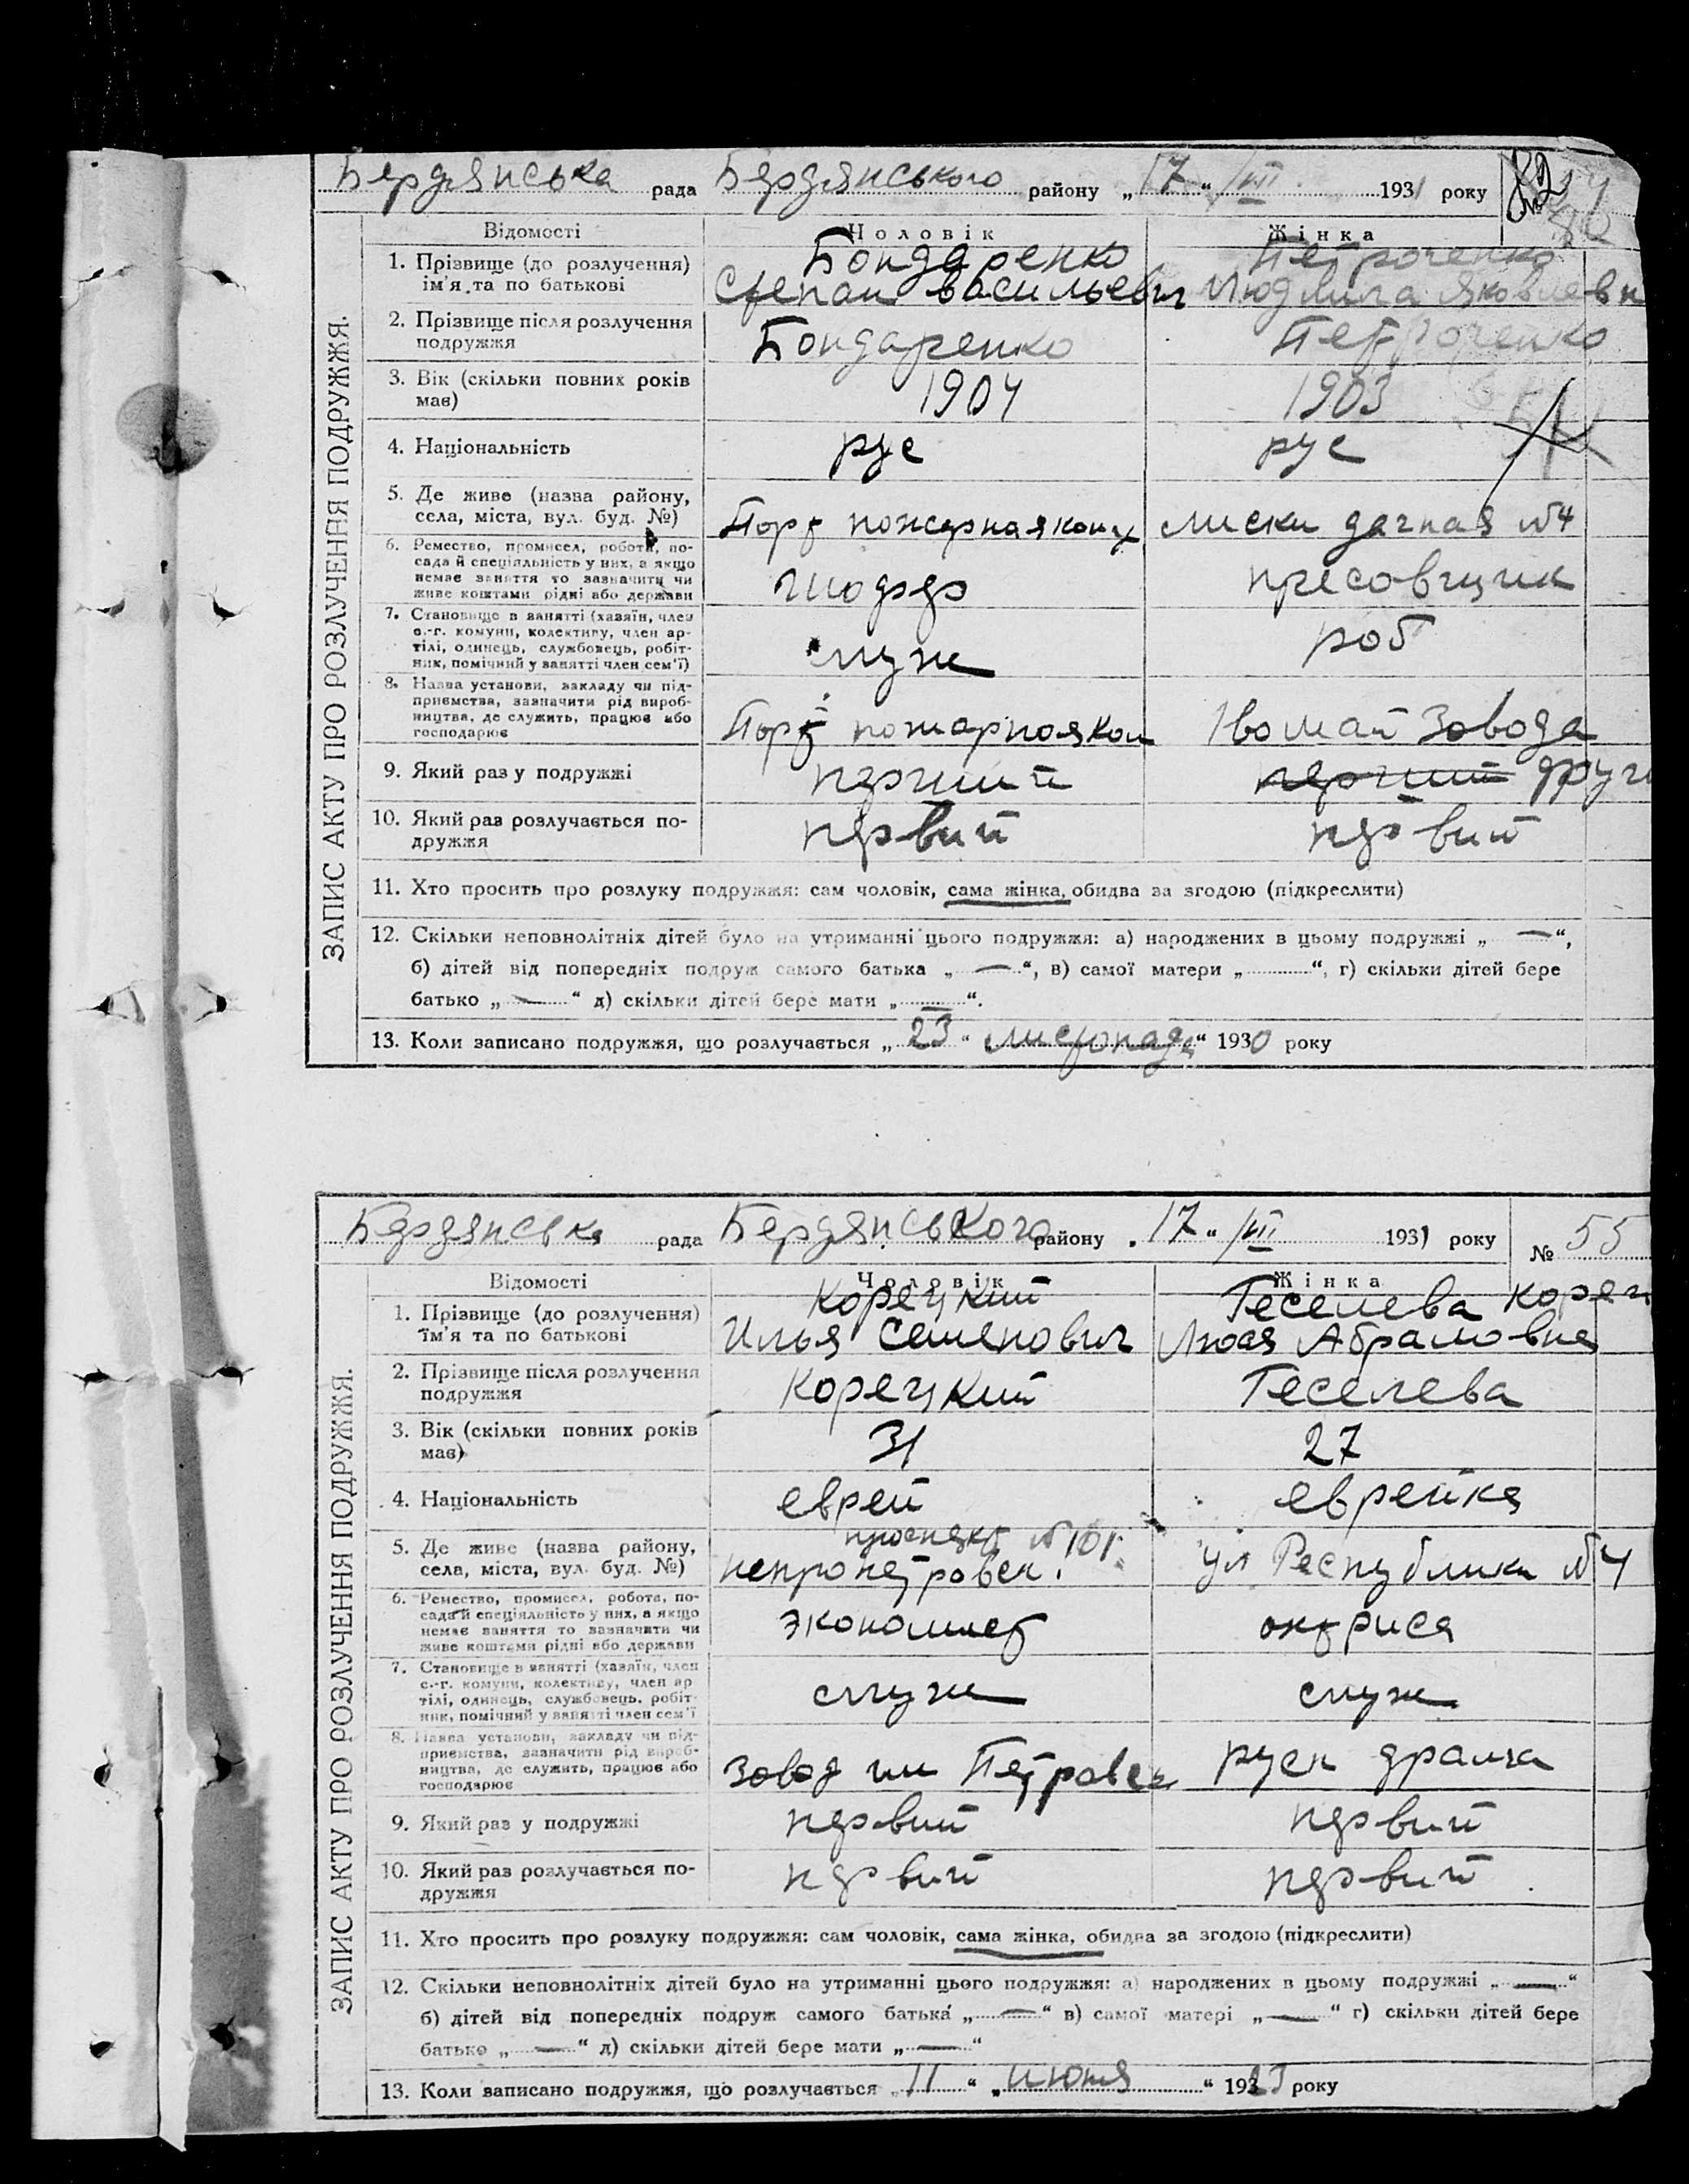 Бердянська рада Бердянського району „17“ /VII 1931 року №
ЗАПИС АКТУ ПРО РОЗЛУЧЕННЯ ПОДРУЖЖЯ.
Відомості Чоловік Жінка
1. Прізвище (до розлучення) Бондаренко Петроченко
ім'я та по батькові Степан Васильевич Людмила Яковлевн
2. Прізвище після розлучення Бондаренко Петроченко
подружжя
3. Вік (скільки повних років 1904 1903
має)
4. Національність рус рус
5. Де живе (назва району,
села, міста, вул. буд. №) Порт пожарная лиски дачная №4
6. Ремество, промисел, робота, по-
сада й спеціяльність у них, а якщо
немає заняття то зазначити чи пресовщик
живе коштами рідні або держави
7. Становище в занятті (хазяїн, член
с.-г. комуни, колективу, член ар- роб
тілі, одинець, службовець, робіт- служ
ник, помічний у занятті член сем'ї)
8. Назва установи, закладу чи під-
приємства, зазначити рід вироб-
ництва, де служить, працює або Порт пожарная ком 1во май Завода
господарює
9. Який раз у подружжі перший перший други
10. Який раз розлучається по- первий первий
дружжя
11. Хто просить про розлуку подружжя: сам чоловік, сама жінка, обидва за згодою (підкреслити)
12. Скільки неповнолітніх дітей було на утриманні цього подружжя: а) народжених в цьому подружжі „—“,
б) дітей від попередніх подруж самого батька „—“, в) самої матери „......“, г) скільки дітей бере
батько „—“ д) скільки дітей бере мати „—“.
13. Коли записано подружжя, що розлучається „23“ „листопада“ 1930 року
Бердянська рада Бердянського району „17“ /VII 1931 року № 55
ЗАПИС АКТУ ПРО РОЗЛУЧЕННЯ ПОДРУЖЖЯ.
Відомості Чоловік Жінка
1. Прізвище (до розлучення) Корецкий Теселева Корец
їм'я та по батькові Илья Семенович Люся Абрамовна
2. Прізвище після розлучення Корецкий Теселева
подружжя
3. Вік (скільки повних років 31 27
має)
4. Національність еврей еврейка
5. Де живе (назва району, проспект №101
села, міста, вул. буд. №) непропетровск. ул Республики №4
6. Ремество, промисел, робота, по-
сада й спеціяльність у них, а якщо экономист актриса
немає заняття то зазначити чи
живе коштами рідні або держави
7. Становище в занятті (хазяїн, член
с.-г. комуни, колективу, член ар служ служ
тілі, одинець, службовець, робіт-
ник, помічний у занятті член сем'ї
8. Назва установи, закладу чи під-
приємства, зазначити рід вироб-
ництва, де служить, працює або Завод им Петровск руск драма
господарює
9. Який раз у подружжі первий первий
10. Який раз розлучається по- первий первий
дружжя
11. Хто просить про розлуку подружжя: сам чоловік, сама жінка, обидва за згодою (підкреслити)
12. Скільки неповнолітніх дітей було на утриманні цього подружжя: а) народжених в цьому подружжі „—“
б) дітей від попередніх подруж самого батька „—“ в) самої матері „—“ г) скільки дітей бере
батько „—“ д) скільки дітей бере мати „—“
13. Коли записано подружжя, що розлучається „11“ „июня“ року